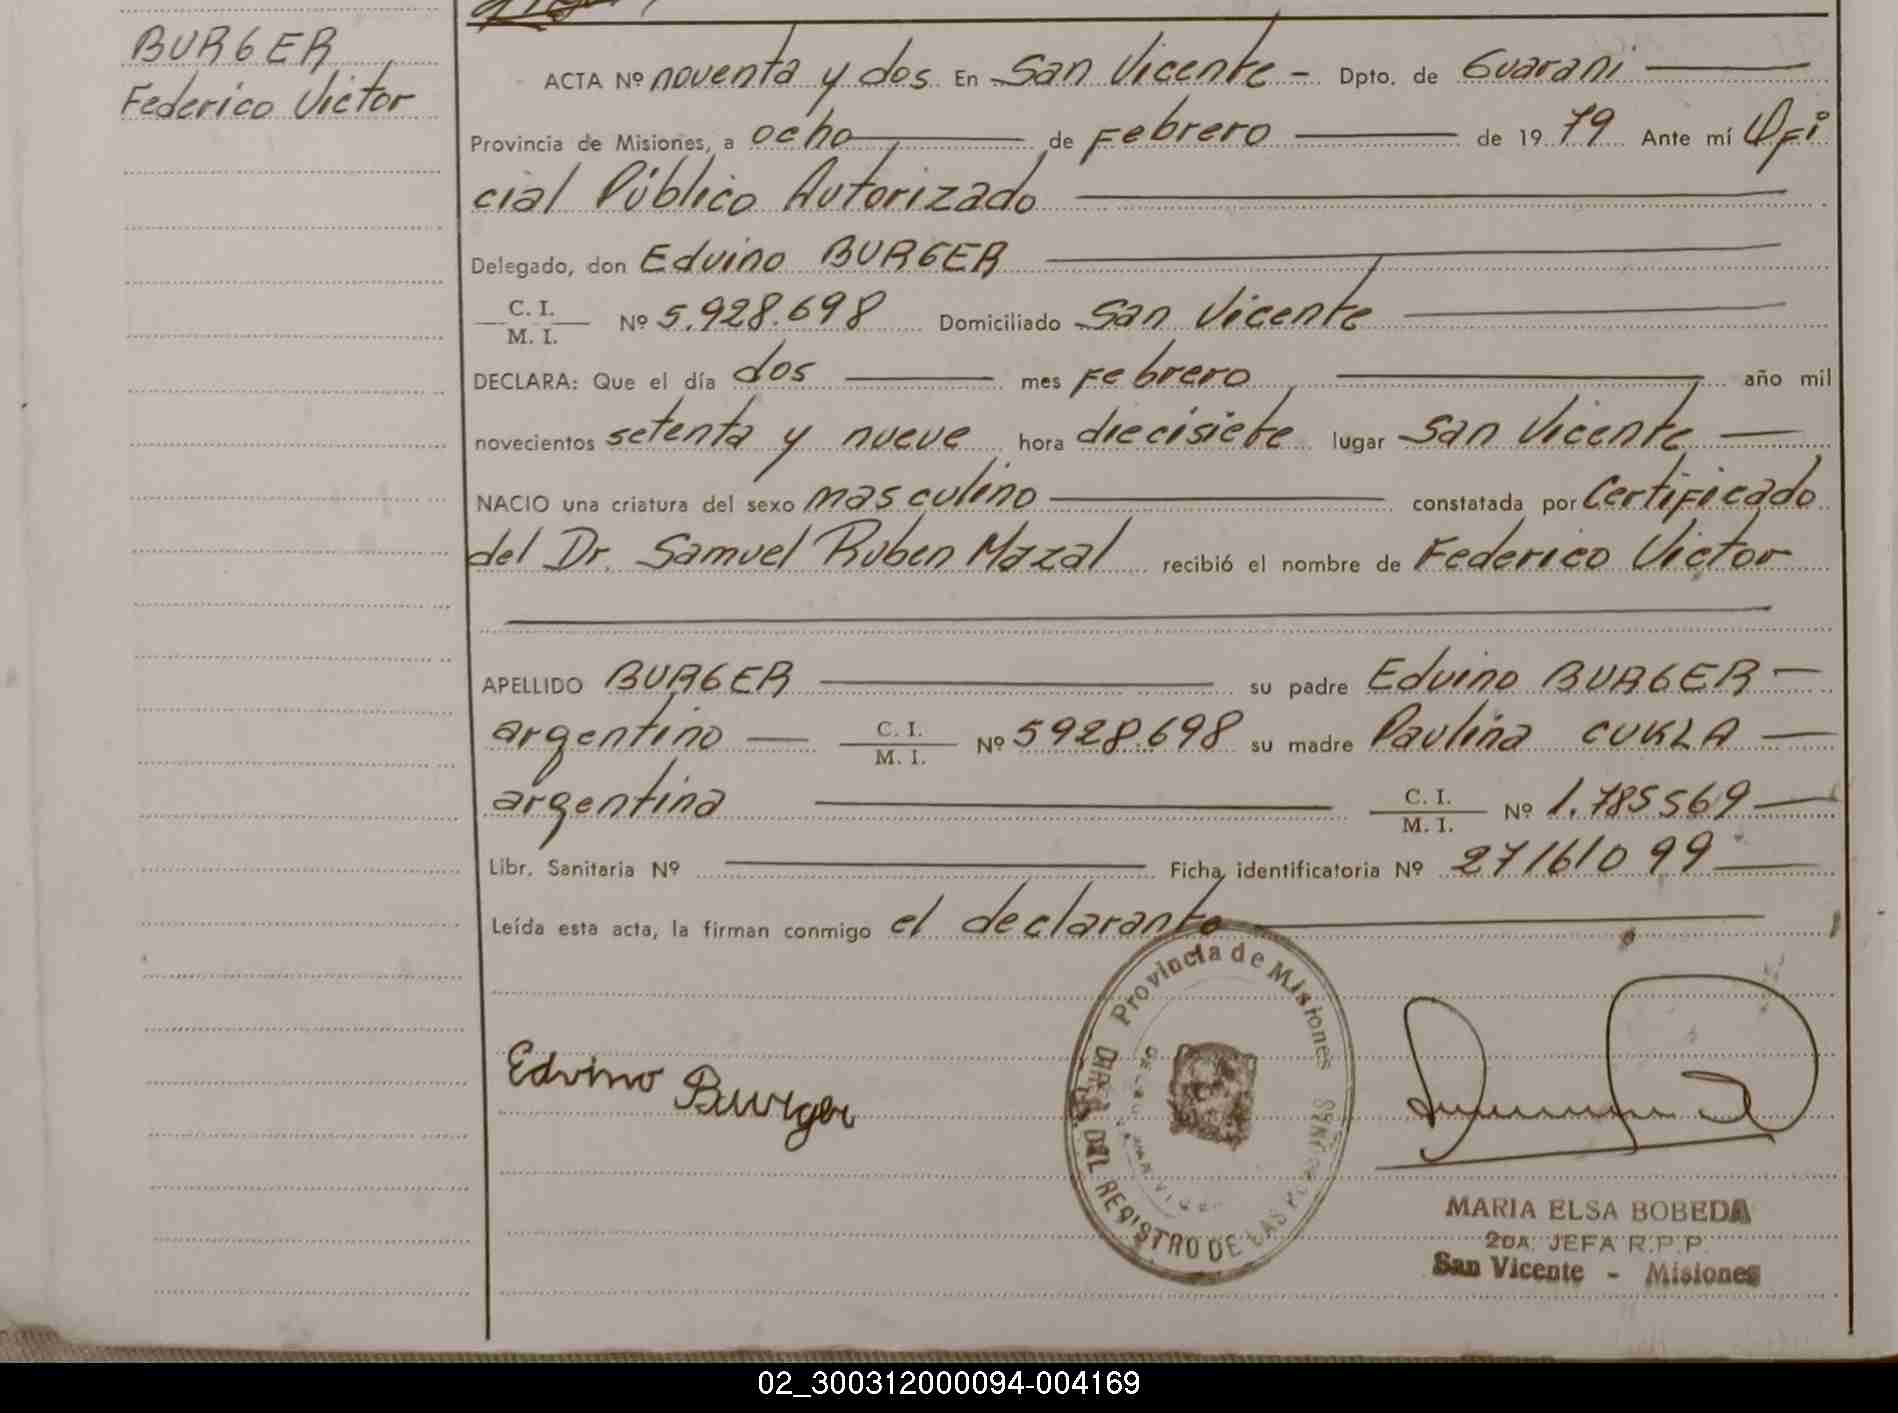 BURGER
Federico Victor
ACTA Nº noventa y dos En San Vicente - Dpto. de Guarani
Provincia de Misiones, a ocho de Febrero de 19 79 Ante mí Ofi
cial Público Autorizado
Delegado, don Edvino BURGER
C. I.
M. I. Nº 5.928.698 Domiciliado San Vicente
DECLARA: Que el día dos mes Febrero año mil
novecientos setenta y nueve hora diecisiete lugar San Vicente
NACIO una criatura del sexo masculino constatada por Certificado
del Dr. Samuel Ruben Mazal recibió el nombre de Federico Victor
APELLIDO BURGER su padre Edvino BURGER
argentino C. I. M. I. Nº 5928.698 su madre Paulina CUKLA
argentina C. I. M. I. Nº 1.785569
Libr. Sanitaria Nº Ficha identificatoria Nº 27161099
Leída esta acta, la firman conmigo el declarante
Provincia de Misiones
DEL REGISTRO DE LAS
Edvino Burger
MARIA ELSA BOBEDA
2DA. JEFA R.P.P.
San Vicente - Misiones
02_300312000094-004169